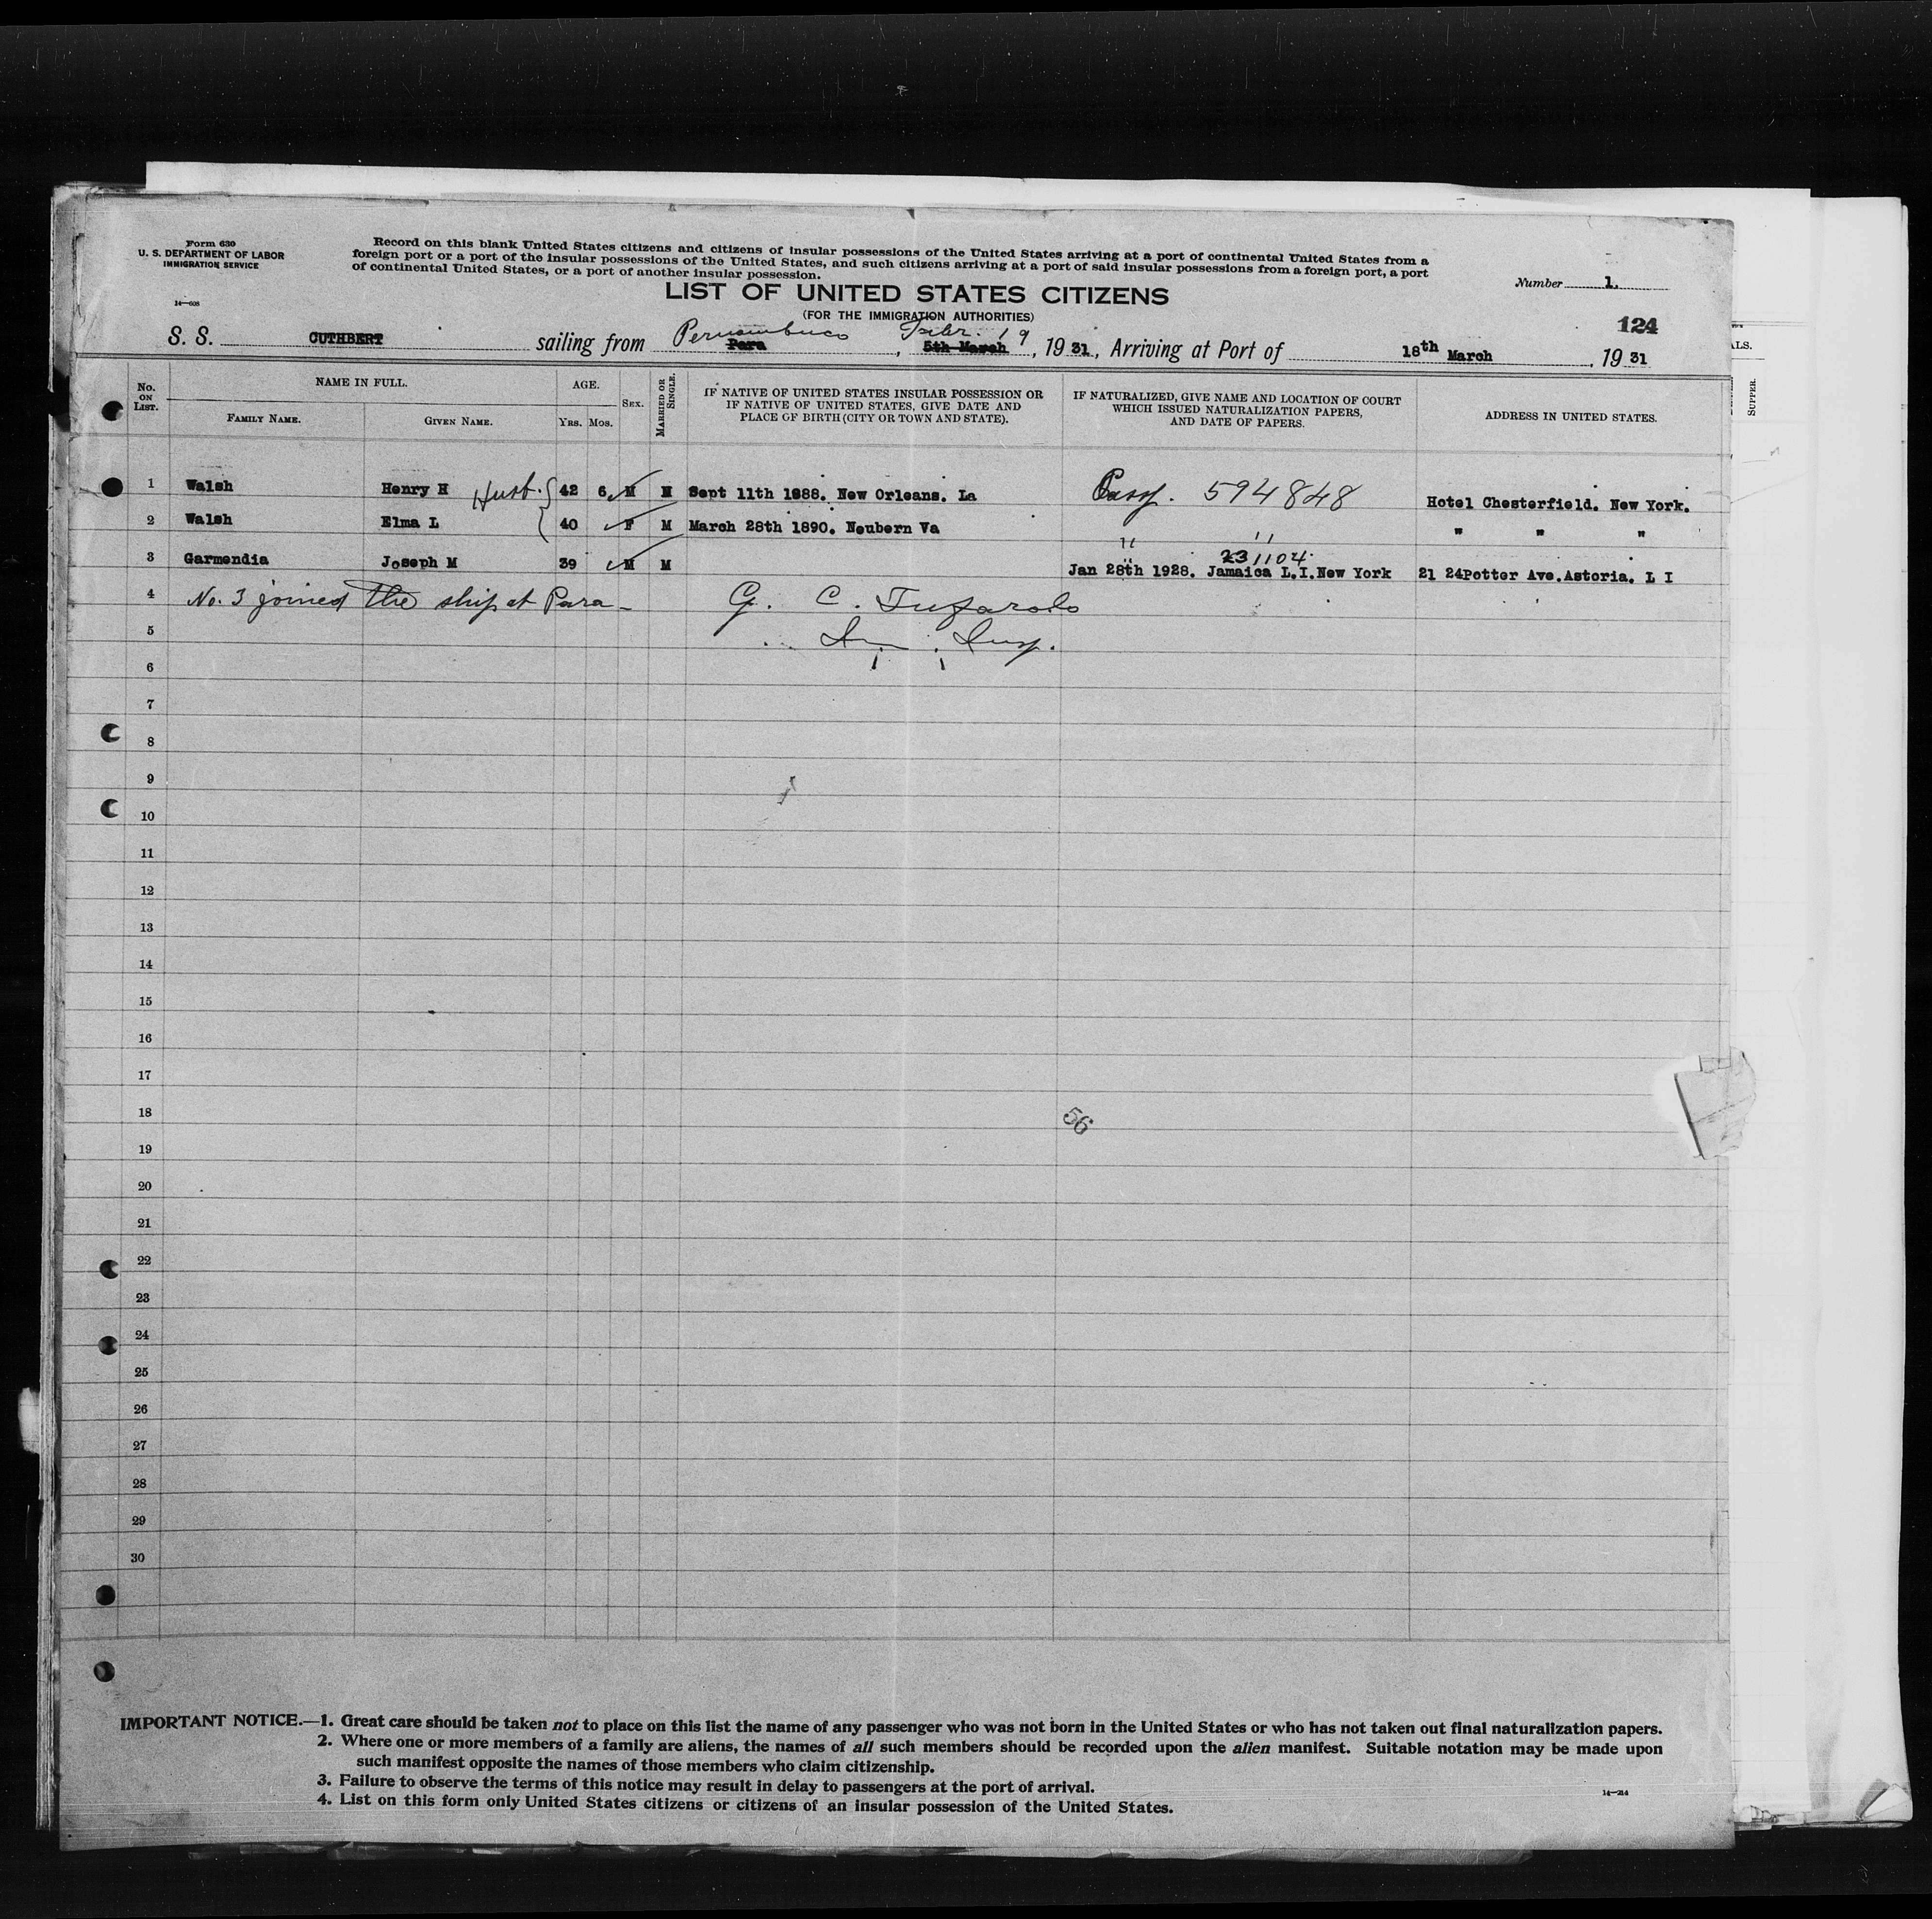 Form 630
U. S. DEPARTMENT OF LABOR
IMMIGRATION SERVICE
14—608
Record on this blank United States citizens and citizens of insular possessions of the United States arriving at a port of continental United States from a
foreign port or a port of the insular possessions of the United States, and such citizens arriving at a port of said insular possessions from a foreign port, a port
of continental United States, or a port of another insular possession.
Number 1.
LIST OF UNITED STATES CITIZENS
(FOR THE IMMIGRATION AUTHORITIES)
124
Pernambuco Febr. 19
S. S. CUTHBERT sailing from Para, 5th March, 19 31, Arriving at Port of 18th March, 19 31
No. ON LIST. NAME IN FULL. FAMILY NAME. GIVEN NAME. AGE. YRS. MOS. SEX. MARRIED OR SINGLE. IF NATIVE OF UNITED STATES INSULAR POSSESSION OR IF NATIVE OF UNITED STATES, GIVE DATE AND PLACE OF BIRTH (CITY OR TOWN AND STATE). IF NATURALIZED, GIVE NAME AND LOCATION OF COURT WHICH ISSUED NATURALIZATION PAPERS, AND DATE OF PAPERS. ADDRESS IN UNITED STATES.
1 Walsh Henry H Husb. 42 6 M M Sept 11th 1888. New Orleans. La Passp. 594848 Hotel Chesterfield. New York.
2 Walsh Elma L 40 F M March 28th 1890. Neubern Va " " " " "
3 Garmendia Joseph M 39 M M " 231104. Jan 28th 1928. Jamaica L.I. New York 21 24 Potter Ave. Astoria. L I
4 No. 3 joined the ship at Para - G. C. Tufarolo
5 Im. Insp.
6
7
8
9
10
11
12
13
14
15
16
17
18 56
19
20
21
22
23
24
25
26
27
28
29
30
IMPORTANT NOTICE.—1. Great care should be taken not to place on this list the name of any passenger who was not born in the United States or who has not taken out final naturalization papers.
2. Where one or more members of a family are aliens, the names of all such members should be recorded upon the alien manifest. Suitable notation may be made upon
such manifest opposite the names of those members who claim citizenship.
3. Failure to observe the terms of this notice may result in delay to passengers at the port of arrival.
4. List on this form only United States citizens or citizens of an insular possession of the United States.
14—214
LS.
SUPPER.